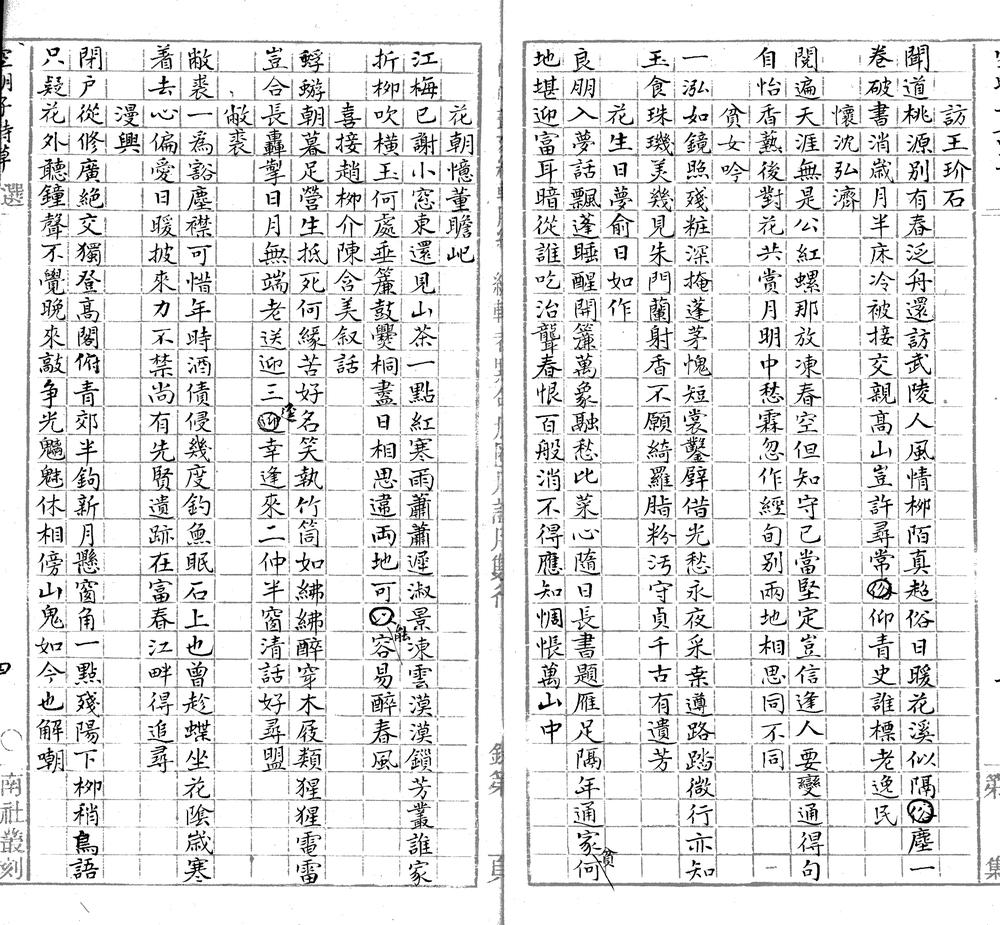 訪王玠石
聞道桃源別有春泛舟還訪武陵人風情柳陌真超俗日暖花溪似隔俗塵一
卷破書消歲月半床冷被接交親高山豈許尋常俗仰青史誰標老逸民
懷沈弘濟
閱遍天涯無是公紅螺那放凍春空但知守已當堅定豈信逢人要變通得句
自怡香爇後對花共賞月明中愁霖忽作經旬別兩地相思同不同
貧女吟
一泓如鏡照殘粧深掩蓬茅愧短裳鑿壁借光愁永夜采桒遵路踏微行亦知
玉食珠璣美幾見朱門蘭射香不願綺羅脂粉汚守貞千古有遺芳
花生日夢俞日如作
良朋入夢話飄蓬睡醒開簾萬象融愁比菜心隨日長書題雁足隔年通家何貧
地堪迎富耳暗從誰吃治聾春恨百般消不得應知惆悵萬山中
花朝憶董瞻屺
江梅已謝小窓東還見山茶一點紅寒雨蕭蕭遲淑景凍雲漠漠鎖芳叢誰家
折柳吹橫玉何處垂簾鼓爨桐盡日相思違両地可能容易醉春風
喜接趙柳介陳含美叙話
蜉蝣朝暮足營生抵死何緣苦好名笑執竹筒如紼紼醉穿木屐類猩猩電雷
豈合長轟掣日月無端老送迎三迎幸逢來二仲半窗清話好尋盟
敝裘
敝裘一為豁塵襟可惜年時酒債侵幾度釣魚眠石上也曾趁蝶坐花陰歲寒
着去心偏愛日暖披來力不禁尚有先賢遺跡在富春江畔得追尋
漫興
閉戶從修廣絕交獨登高閣俯青郊半鉤新月懸窗角一點殘陽下柳稍鳥語
只疑花外聽鐘聲不覺晚來敲争光魑魅休相傍山鬼如今也解嘲
選
四
南社叢刻